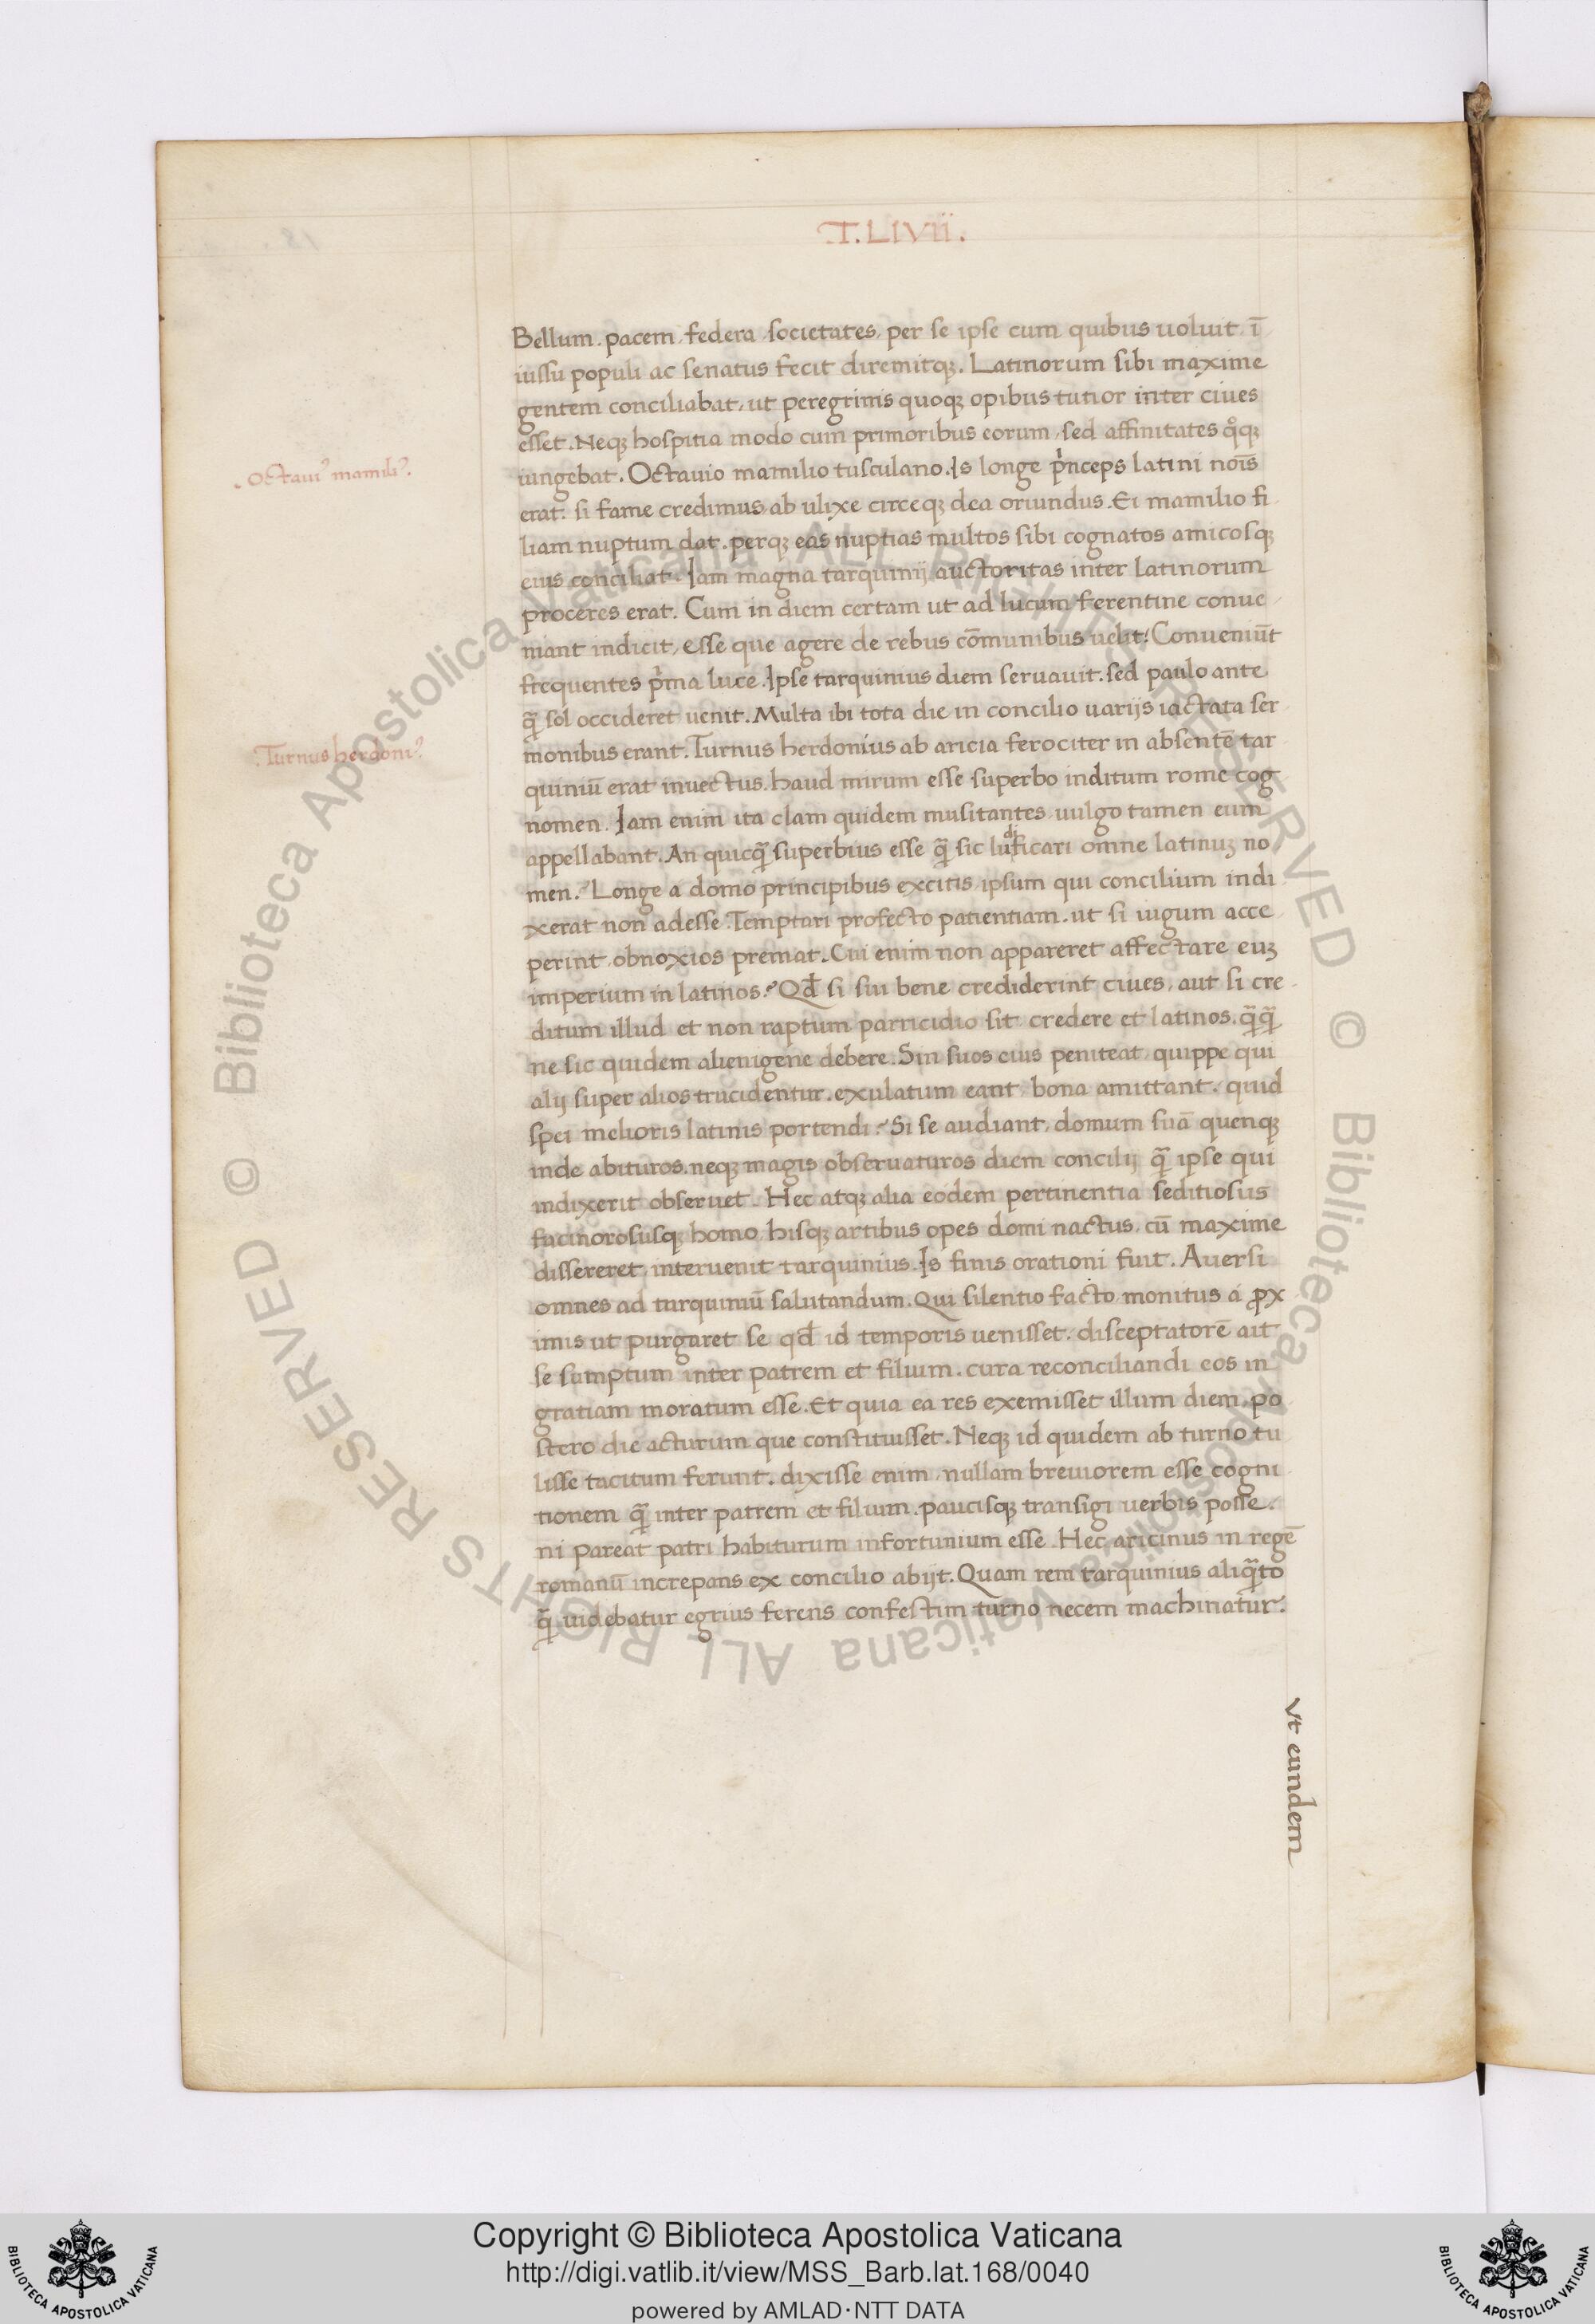 T. LIVII.
Bellum. pacem, federa, societates, per se ipse cum quibus uoluit, ī
iussu populi ac senatus fecit diremitqꝫ. Latinorum sibi maxime
gentem conciliabat, ut peregrinis quoqꝫ opibus tutior inter ciues
esset. Neqꝫ hospitia modo cum primoribus eorum, sed affinitates qͦqꝫ
.Octaui⁹ mamili⁹.
iungebat. Octauio mamilio tusculano. Is longe pͥnceps latini noīs
erat. si fame credimus, ab ulixe circeqꝫ dea oriundus. Ei mamilio fi
liam nuptum dat. perqꝫ eas nuptias multos sibi cognatos amicosqꝫ
eius conciliat. Iam magna tarquinij auctoritas inter latinorum
proceres erat. Cum in diem certam ut ad lucum ferentine conue
niant indicit, esse que agere de rebus cōmunibus uelit. Conueniūt
frequentes pͥma luce. Ipse tarquinius diem seruauit. sed paulo ante
q̄ sol occideret uenit. Multa ibi tota die in concilio uarijs iactata ser
.Turnus herdoni⁹.
monibus erant. Turnus herdonius ab aricia ferociter in absentē tar
quiniū erat inuectus. haud mirum esse superbo inditum rome cog
nomen. Iam enim ita clam quidem musitantes, uulgo tamen eum
appellabant. An quicq̄ superbius esse q̄ sic ludificari omne latinuꝫ no
men? Longe a domo principibus excitis, ipsum qui concilium indi
xerat non adesse. Temptari profecto patientiam. ut si iugum acce
perint, obnoxios premat. Cui enim non appareret affectare euꝫ
imperium in latinos? Qđ si sui bene crediderint ciues, aut si cre
ditum illud et non raptum parricidio sit, credere et latinos. q̄q̄
ne sic quidem alienigene debere. Sin suos eius peniteat, quippe qui
alij super alios trucidentur. exulatum eant, bona amittant. quid
spei melioris latinis portendi? Si se audiant, domum suā quenqꝫ
inde abituros. neqꝫ magis obseruaturos diem concilij q̄ ipse qui
indixerit obseruet. Hec atqꝫ alia eodem pertinentia seditiosus
facinorosusqꝫ homo, hisqꝫ artibus opes domi nactus, cū maxime
dissereret, interuenit tarquinius. Is finis orationi fuit. Auersi
omnes ad tarquiniū salutandum. Qui silentio facto monitus a ꝓx
imis ut purgaret se qđ id temporis uenisset. disceptatorē ait
se sumptum inter patrem et filium. cura reconciliandi eos in
gratiam moratum esse. Et quia ea res exemisset illum diem, po
stero die acturum que constituisset. Neqꝫ id quidem ab turno tu
lisse tacitum ferunt. dixisse enim, nullam breuiorem esse cogni
tionem q̄ inter patrem et filium. paucisqꝫ transigi uerbis posse.
ni pareat patri habiturum infortunium esse. Hec aricinus in regē
romanū increpans ex concilio abijt. Quam rem tarquinius aliq̄to
q̄ uidebatur egrius ferens confestim turno necem machinatur.
Vt eundem
Copyright © Biblioteca Apostolica Vaticana
http://digi.vatlib.it/view/MSS_Barb.lat.168/0040
powered by AMLAD·NTT DATA